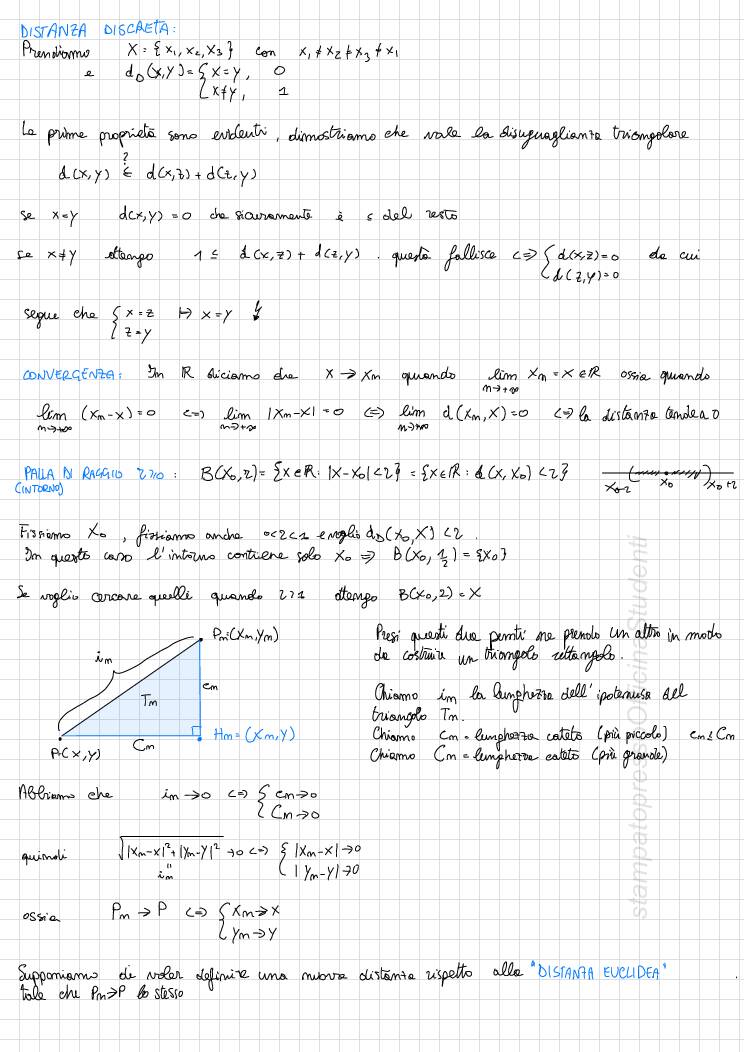 DISTANZA DISCRETA:
Prendiamo X = {x₁, x₂, x₃} con x₁ ≠ x₂ ≠ x₃ ≠ x₁
e d_D(x,y) = { x=y, 0
x≠y, 1
Le prime proprietà sono evidenti, dimostriamo che vale la disuguaglianza triangolare
?
d(x,y) ≤ d(x,z) + d(z,y)
se x=y d(x,y) = 0 che sicuramente è ≤ del resto
se x≠y ottengo 1 ≤ d(x,z) + d(z,y). questa fallisce <=> { d(x,z)=0 da cui
d(z,y)=0
segue che { x=z ↦ x=y ↯
z=y
CONVERGENZA: In ℝ diciamo che x → xₙ quando lim xₙ = x ∈ ℝ ossia quando
n→+∞
lim (xₙ-x)=0 <=> lim |xₙ-x| = 0 <=> lim d(xₙ,x)=0 <=> la distanza tende a 0
n→+∞ n→+∞ n→+∞
PALLA DI RAGGIO r>0: B(x₀,r) = {x∈ℝ: |x-x₀|<r} = {x∈ℝ: d(x,x₀)<r}
(INTORNO)
x₀-r x₀ x₀+r
Fissiamo x₀, fissiamo anche 0<r<1 e voglio d_D(x₀,x)<r.
In questo caso l'intorno contiene solo x₀ => B(x₀, 1/2) = {x₀}
Se voglio cercare quelli quando r>1 ottengo B(x₀,r) = X
Pₙ=(xₙ,yₙ)
iₙ
cₙ
Tₙ
Hₙ = (xₙ,y)
Cₙ
P=(x,y)
Presi questi due punti ne prendo un altro in modo
da costruire un triangolo rettangolo.
Chiamo iₙ la lunghezza dell'ipotenusa del
triangolo Tₙ.
Chiamo cₙ = lunghezza cateto (più piccolo) cₙ ≤ Cₙ
Chiamo Cₙ = lunghezza cateto (più grande)
Abbiamo che iₙ → 0 <=> { cₙ → 0
Cₙ → 0
quindi √|xₙ-x|²+|yₙ-y|² → 0 <=> { |xₙ-x| → 0
|yₙ-y| → 0
"
iₙ
ossia Pₙ → P <=> { xₙ → x
yₙ → y
Supponiamo di voler definire una nuova distanza rispetto alla "DISTANZA EUCLIDEA"
tale che Pₙ → P lo stesso